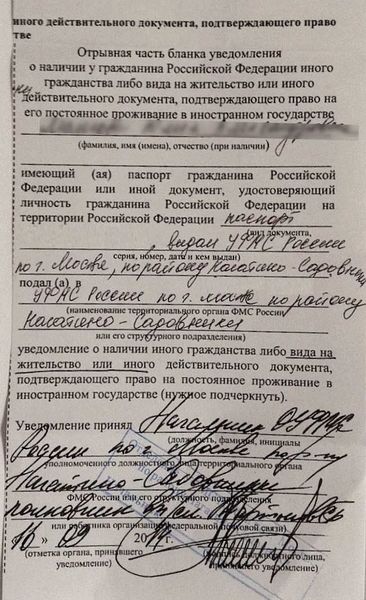 иного действительного документа, подтверждающего право
тве
Отрывная часть бланка уведомления
о наличии у гражданина Российской Федерации иного
гражданства либо вида на жительство или иного
действительного документа, подтверждающего право на
его постоянное проживание в иностранном государстве
(фамилия, имя (имена), отчество (при наличии)
имеющий (ая) паспорт гражданина Российской
Федерации или иной документ, удостоверяющий
личность гражданина Российской Федерации на
территории Российской Федерации паспорт
(вид документа,
выдан УФМС России
серия, номер, дата и кем выдан)
по г. Москве, по району Нагатино-Садовники
подал (а) в
УФМС России по г. Москве по району
(наименование территориального органа ФМС России
Нагатино-Садовники
или его структурного подразделения)
уведомление о наличии иного гражданства либо вида на
жительство или иного действительного документа,
подтверждающего право на постоянное проживание в
иностранном государстве (нужное подчеркнуть).
Уведомление принял Начальник ОУФМС
(должность, фамилия, инициалы
России по г. Москве по р-ну
уполномоченного должностного лица территориального органа
Нагатино-Садовники
ФМС России или его структурного подразделения
полковник вн. сл.
или работника организации федеральной почтовой связи)
16 " 09 2014
(отметка органа, принявшего (подпись должностного лица,
уведомление) принявшего уведомление)